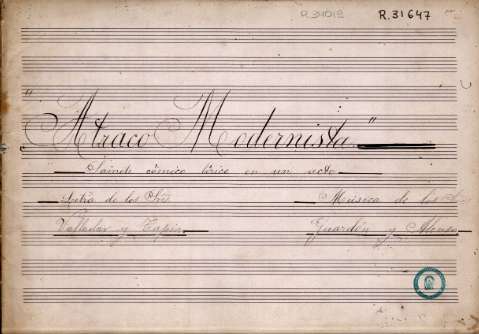 R.31019 R.31647
"Atraco Modernista"
Sainete cómico lírico en un acto
Letra de los Sres Música de los
Vallador y Tapia Guardón y Alonso